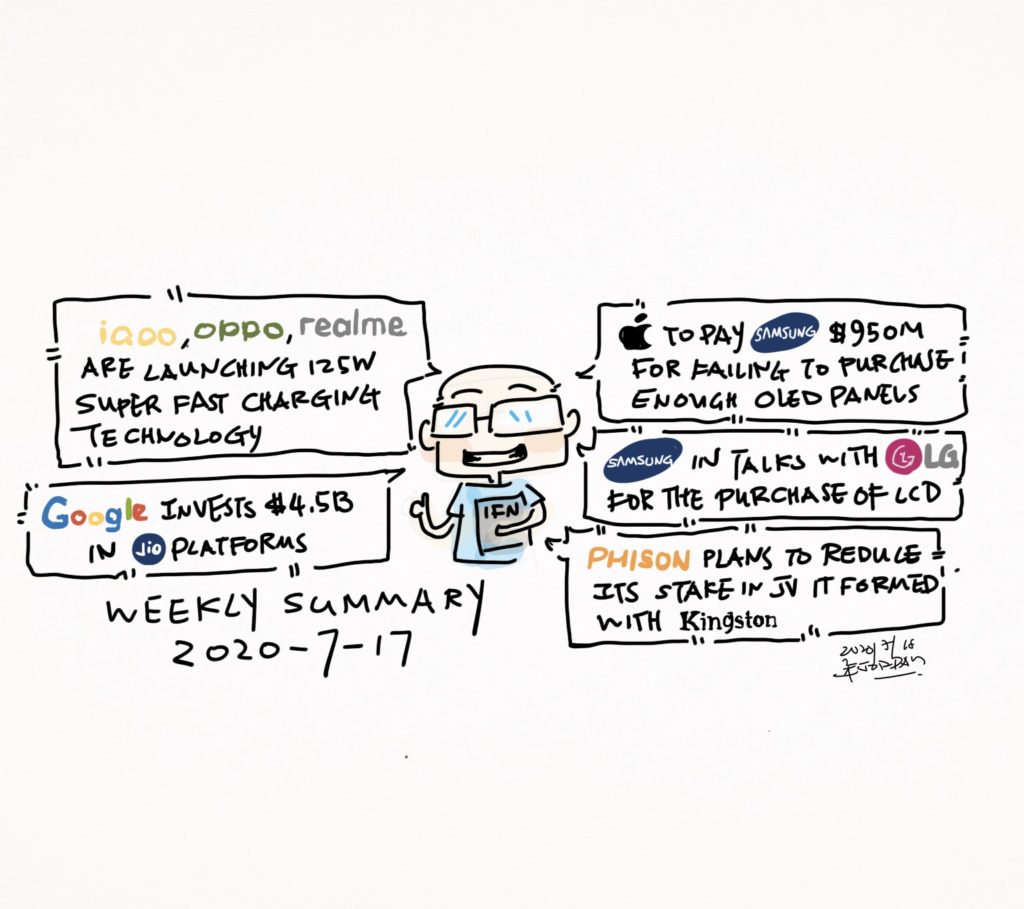 iQOO, OPPO, realme
ARE LAUNCHING 125W
SUPER FAST CHARGING
TECHNOLOGY
Google INVESTS $4.5B
IN Jio PLATFORMS
WEEKLY SUMMARY
2020-7-17
IFN
TO PAY SAMSUNG $950M
FOR FAILING TO PURCHASE
ENOUGH OLED PANELS
SAMSUNG IN TALKS WITH LG LG
FOR THE PURCHASE OF LCD
PHISON PLANS TO REDUCE
ITS STAKE IN JV IT FORMED
WITH Kingston
2020/7/18
JORDAN